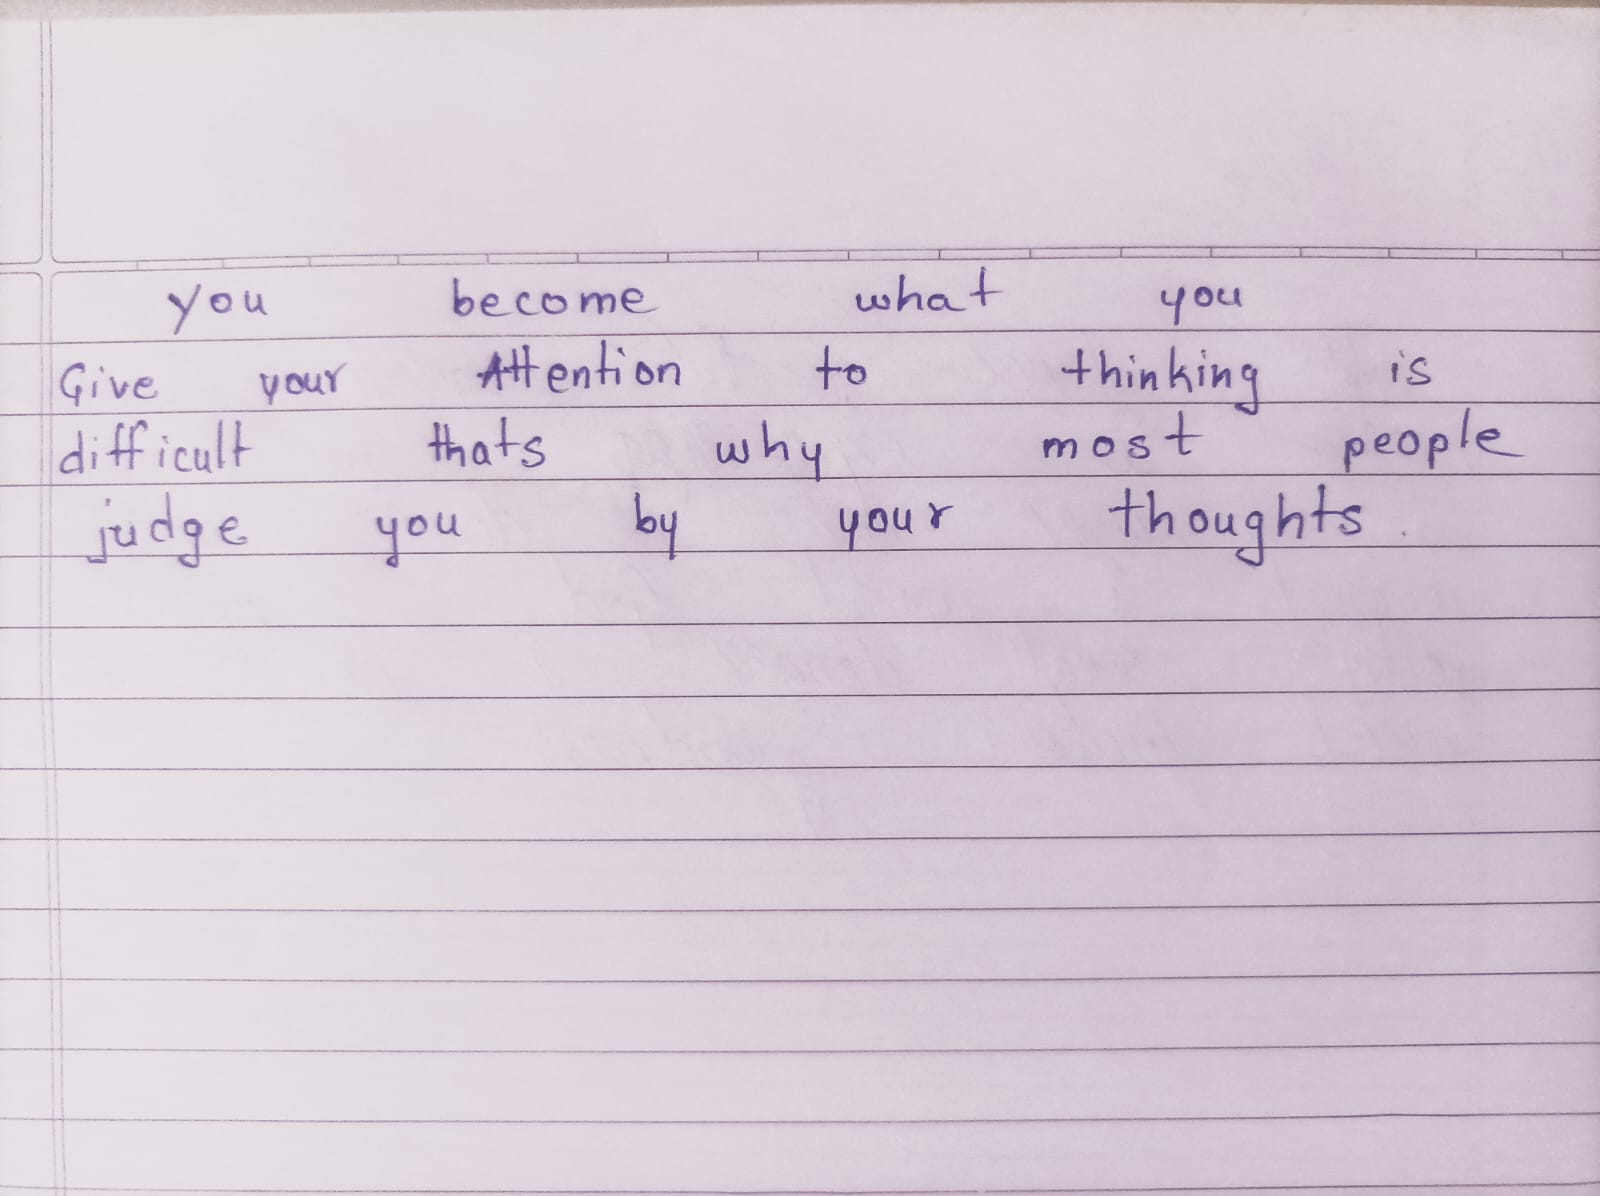 you become what you
Give your Attention to thinking is
difficult thats why most people
judge you by your thoughts.